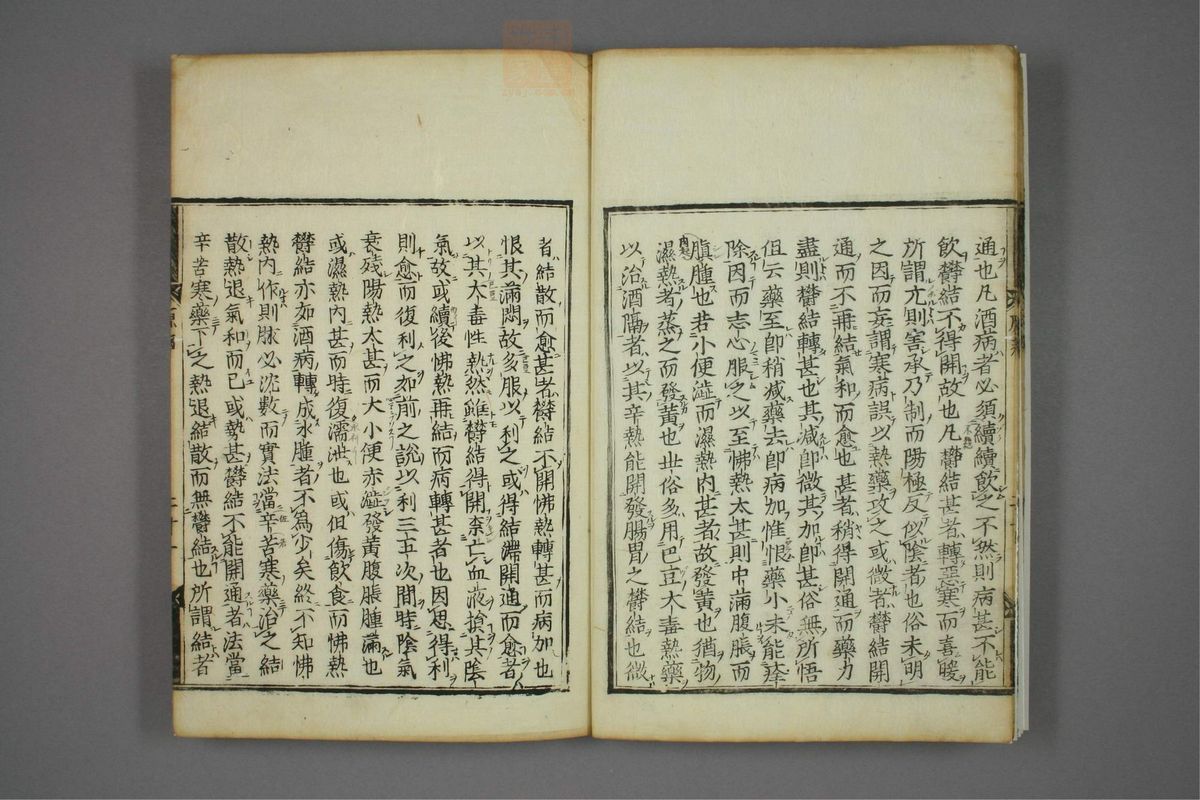 通也凡酒病者必須續續飲之不然則病甚不能
飲欝結不得開故也凡欝結甚者轉惡寒而喜暖
所謂亢則害承乃制而陽極反似陰者也俗未明
之因而妄謂寒病誤以熱藥攻之或微者欝結開
通而不再結氣和而愈也甚者稍得開通而藥力
盡則欝結轉甚也其減卽微其加卽甚俗無所悟
但云藥至卽稍減藥去卽病加惟恨藥小未能痊
除因而志心服之以至怫熱太甚則中滿腹脹而
䐜腫也若小便澁而濕熱內甚者故發黃也猶物
濕熱者蒸之而發黃也世俗多用巴豆大毒熱藥
以治酒隔者以其辛熱能開發腸胃之欝結也微
者結散而愈甚者欝結不開怫熱轉甚而病加也
恨其滿悶故多服以利之或得結滯開通而愈者
以其大毒性熱然雖欝結得開柰亡血液損其陰
氣故或續後怫熱再結而病轉甚者也因思得利
則愈而復利之如前之說以利三五次間陰氣
衰殘陽熱太甚而大小便赤澁發黃腹脹腫滿也
或濕熱內甚而時復濡泄也或但傷飲食而怫熱
欝結亦如酒病轉成水腫者不爲少矣終不知怫
熱內作則脉必沈數而實法當辛苦寒藥治之結
散熱退氣和而已或熱甚欝結不能開通者法當
辛苦寒藥下之熱退結散而無欝結也所謂結者